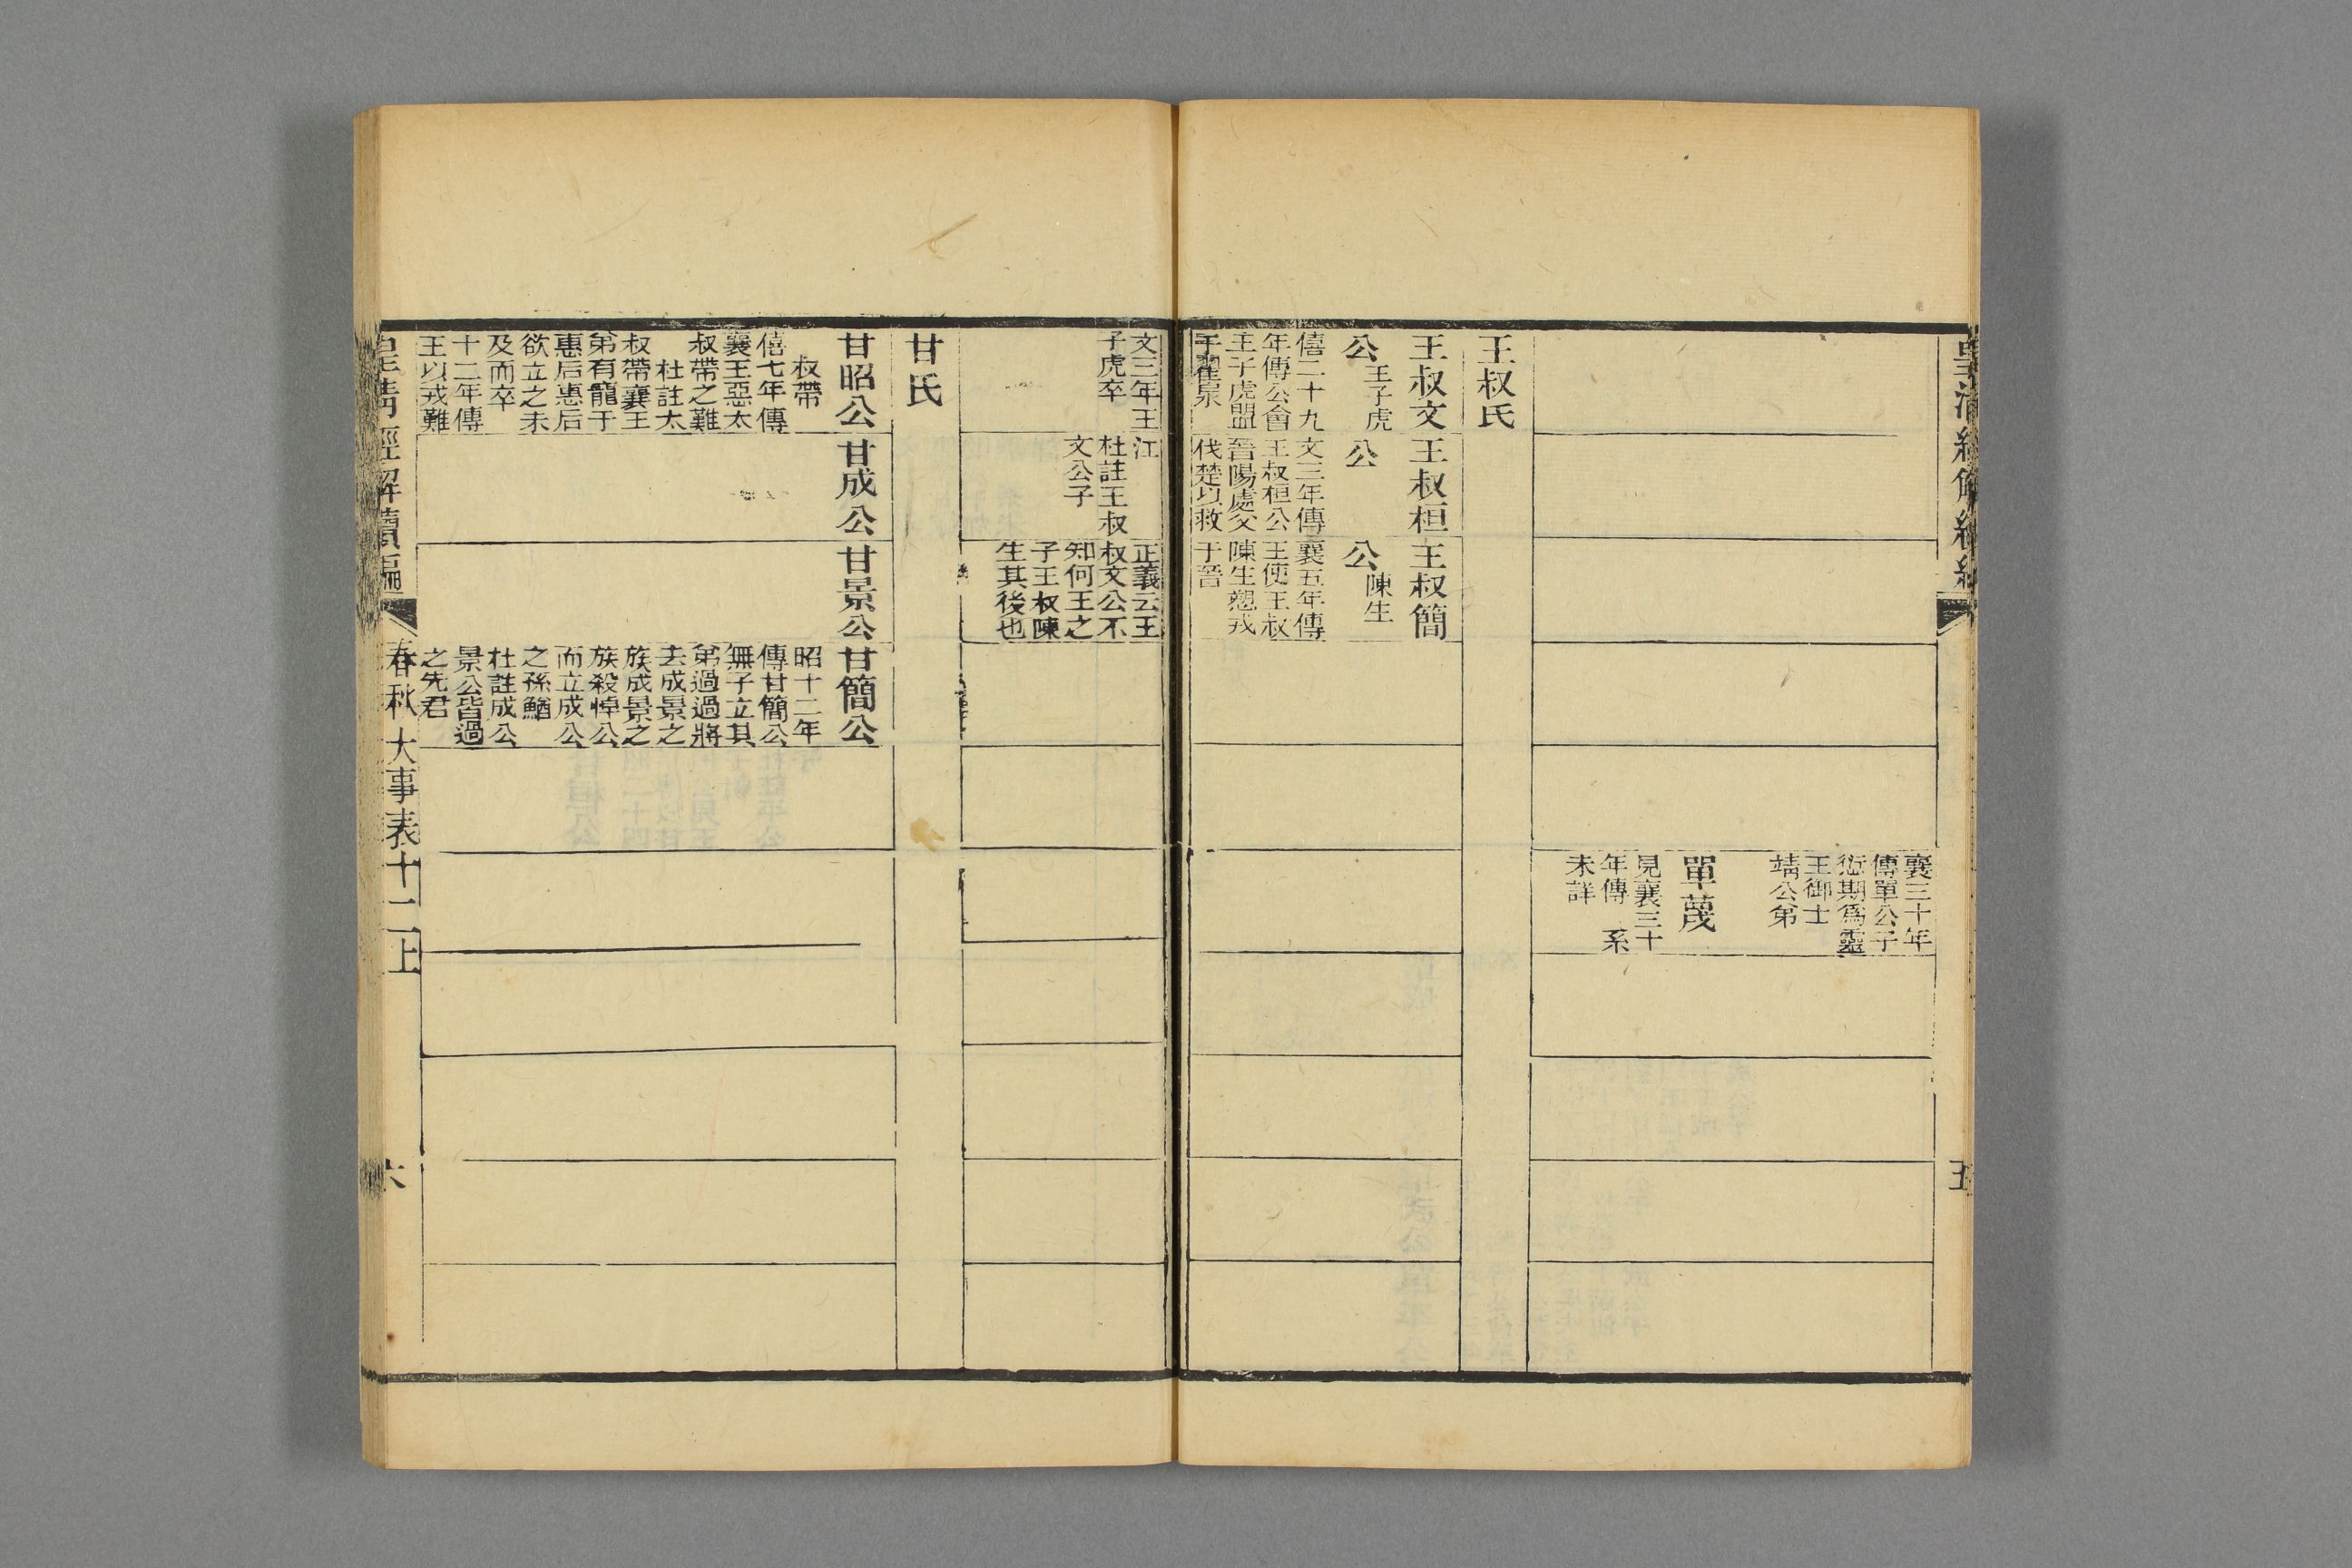 皇清經解續編
五
襄三十年
傳單公子
愆期爲靈
王御士
靖公弟
單蔑
見襄三十
年傳 系
未詳
王叔氏
王叔文
公 王子虎
僖二十九
年傳公會
王子虎盟
于翟泉
王叔桓
公
文三年傳
王叔桓公
晉陽處父
伐楚以救
王叔簡
公 陳生
襄五年傳
王使王叔
陳生愬戎
于晉
文三年王
子虎卒
江
杜註王叔
文公子
正義云王
叔文公不
知何王之
子王叔陳
生其後也
甘氏
甘昭公
叔帶
僖七年傳
襄王惡太
叔帶之難
杜註太
叔帶襄王
弟有寵于
惠后惠后
欲立之未
及而卒
十二年傳
王以戎難
甘成公
甘景公
甘簡公
昭十二年
傳甘簡公
無子立其
弟過過將
去成景之
族成景之
族殺悼公
而立成公
之孫鰌
杜註成公
景公皆過
之先君
皇清經解續編
春秋大事表十二上
六